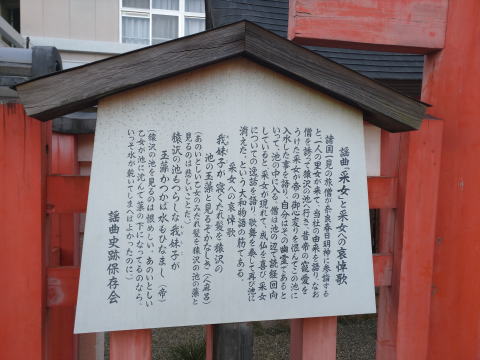 謡曲「采女」と采女への哀悼歌
諸国一見の旅僧が奈良春日明神に参詣する
と、一人の里女が来て、当社の由来を語り、なお
僧を誘って猿沢の池へ行き、昔帝の寵愛を
うけた采女が帝の御心変りを恨んでこの池に
入水した事を語り、自分はその幽霊であると
いって、池の中に入る。僧は池の辺で読経回向
していると、采女が現れて、成仏を喜び、采女
についての逸話を語り、歌舞を奏して再び池に
消えた、という大和物語の筋である。
采女への哀悼歌
我妹子が寝くたれ髪を猿沢の
池の玉藻と見るぞかなしき（人麻呂）
（あのいとしい乙女のみだれ髪を猿沢の池の藻と
見るのは悲しいことだ。）
猿沢の池もつらしな我妹子が
玉藻かつかば水もひなまし（帝）
（猿沢の池を見るのは恨めしい。あのいとしい
乙女が池に沈んで藻の下になっているのなら、
いっそ水が乾いてしまえばよかったのに）
謡曲史跡保存会